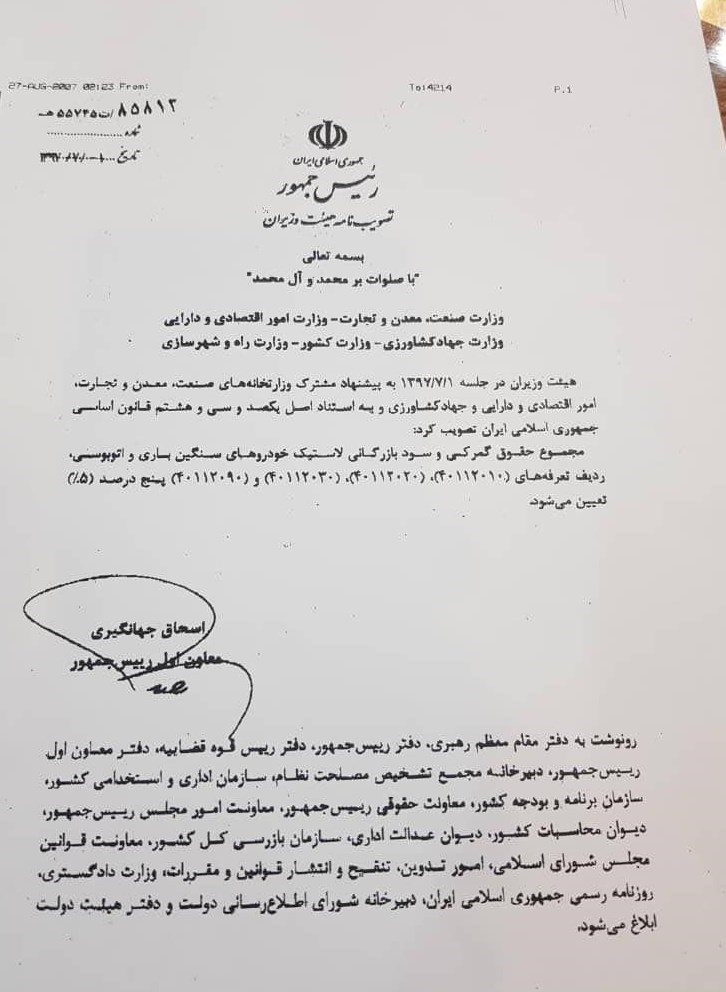 27-AUG-2007 02:23 From: To:4214 P.1
۸۵۸۱۲/ت۵۵۷۴۵هـ
شماره
تاریخ
جمهوری اسلامی ایران
رئیس جمهور
تصویب نامه هیئت وزیران
بسمه تعالی
"با صلوات بر محمد و آل محمد"
وزارت صنعت، معدن و تجارت – وزارت امور اقتصادی و دارایی
وزارت جهادکشاورزی – وزارت کشور – وزارت راه و شهرسازی
هیئت وزیران در جلسه ۱۳۹۷/۷/۱ به پیشنهاد مشترک وزارتخانه‌های صنعت، معدن و تجارت،
امور اقتصادی و دارایی و جهادکشاورزی و به استناد اصل یکصد و سی و هشتم قانون اساسی
جمهوری اسلامی ایران تصویب کرد:
مجموع حقوق گمرکی و سود بازرگانی لاستیک خودروهای سنگین باری و اتوبوسی،
ردیف تعرفه‌های (۴۰۱۱۲۰۱۰)، (۴۰۱۱۲۰۲۰)، (۴۰۱۱۲۰۳۰) و (۴۰۱۱۲۰۹۰) پنج درصد (۵٪)
تعیین می‌شود.
اسحاق جهانگیری
معاون اول رییس‌جمهور
رونوشت به دفتر مقام معظم رهبری، دفتر رییس‌جمهور، دفتر رییس قوه قضاییه، دفتر معاون اول
رییس‌جمهور، دبیرخانه مجمع تشخیص مصلحت نظام، سازمان اداری و استخدامی کشور،
سازمان برنامه و بودجه کشور، معاونت حقوقی رییس‌جمهور، معاونت امور مجلس رییس‌جمهور،
دیوان محاسبات کشور، دیوان عدالت اداری، سازمان بازرسی کل کشور، معاونت قوانین
مجلس شورای اسلامی، امور تدوین، تنقیح و انتشار قوانین و مقررات، وزارت دادگستری،
روزنامه رسمی جمهوری اسلامی ایران، دبیرخانه شورای اطلاع‌رسانی دولت و دفتر هیئت دولت
ابلاغ می‌شود.